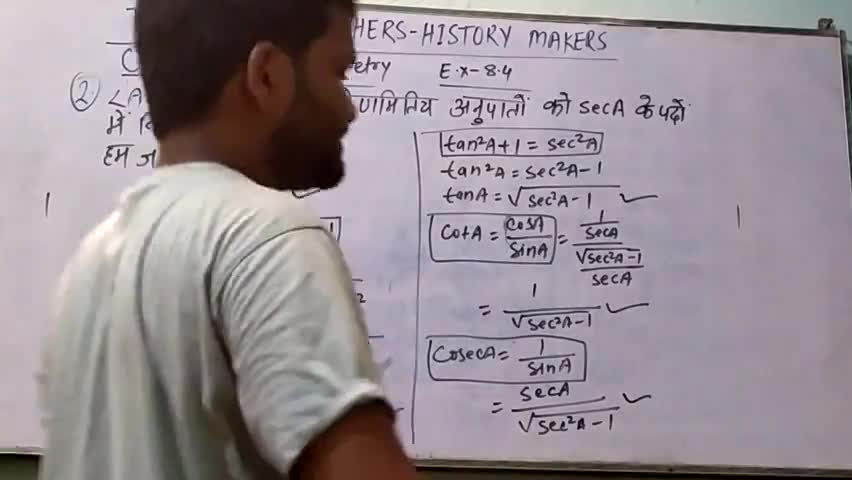 HERS-HISTORY MAKERS
etry E.x-8.4
2. <A अनुपातों को secA के पदों
में
हम
tan²A+1 = sec²A
tan²A = sec²A-1
tanA = √sec²A-1
CotA = cosA/sinA = 1/secA / √sec²A-1/secA
= 1/√sec²A-1
CosecA = 1/sinA
= secA/√sec²A-1